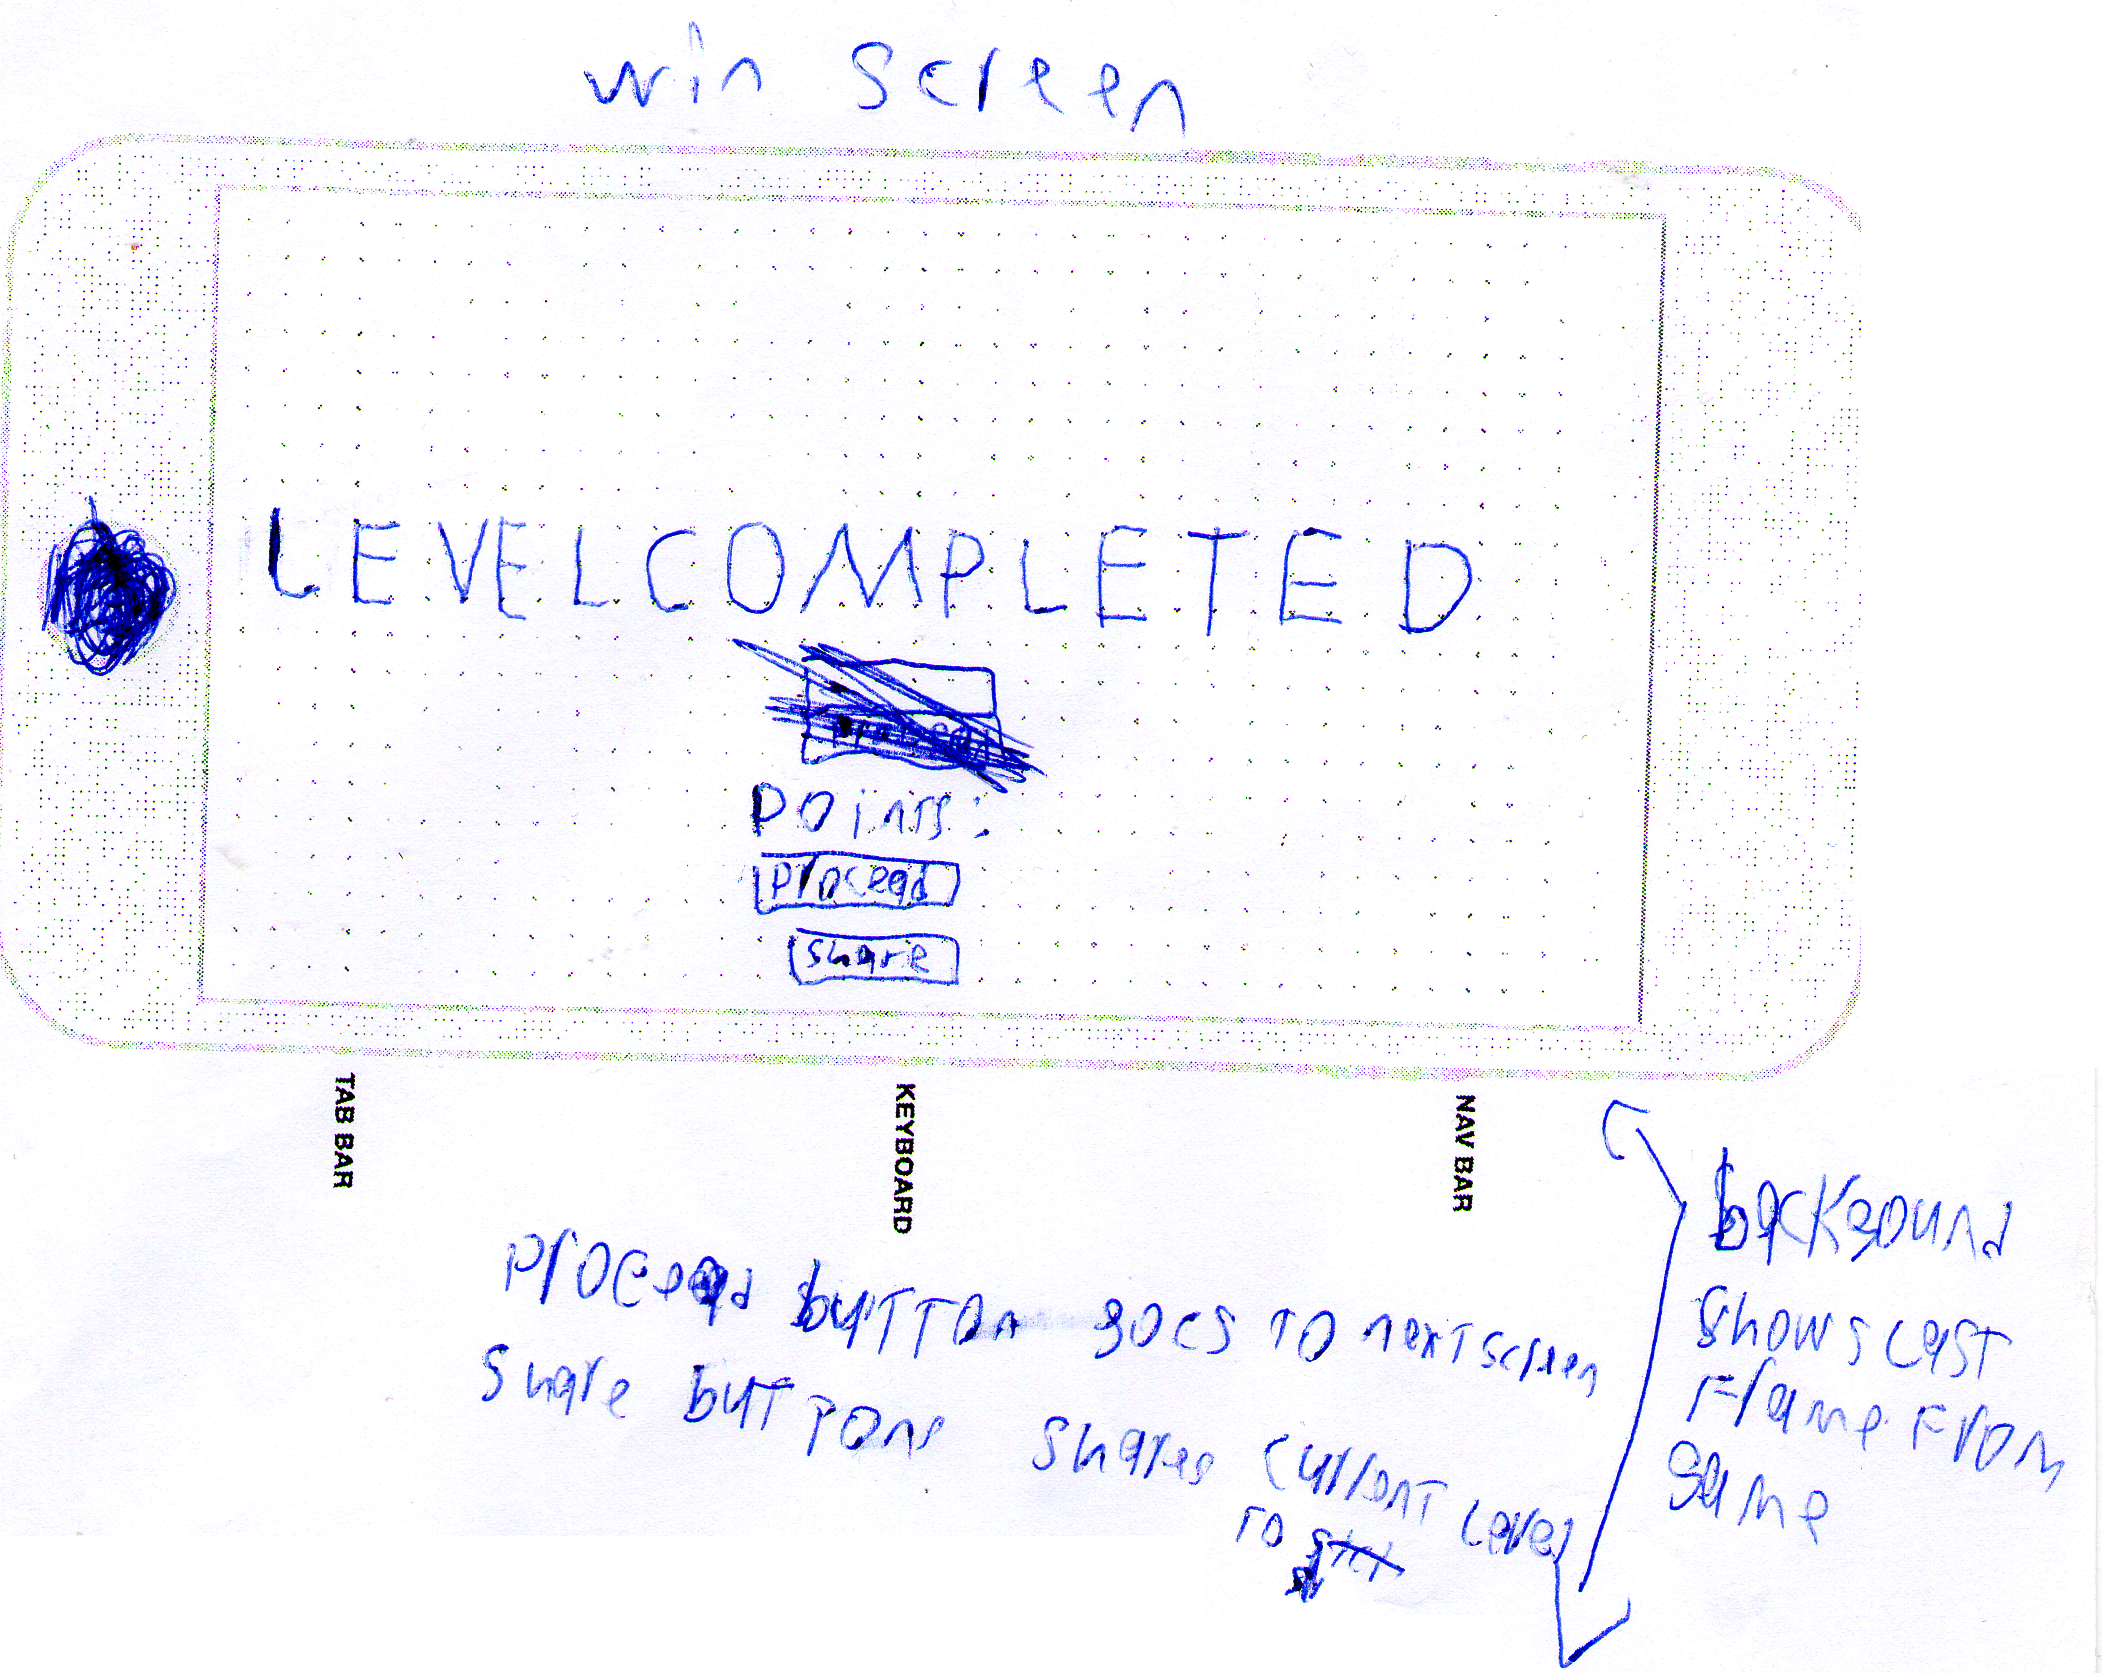 win screen
LEVEL COMPLETED
points:
proceed
share
TAB BAR
KEYBOARD
NAV BAR
proceed button goes to next screen
share buttons shares current level
to
backgound
shows last
frame from
game